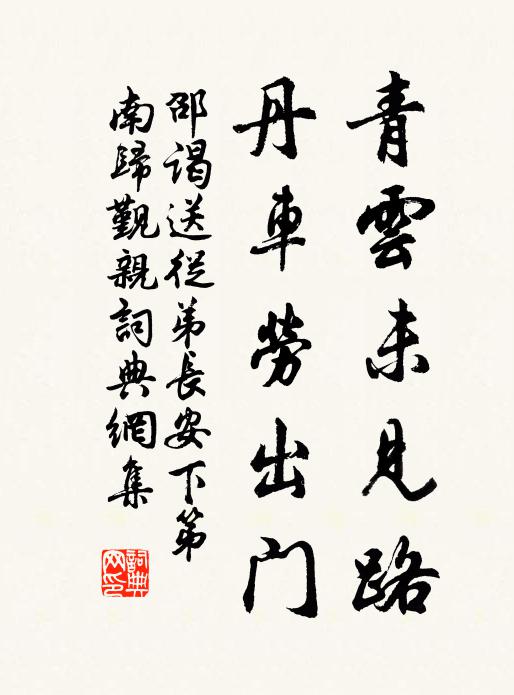 青雲未見路
丹車勞出门
邵謁送從弟長安下第
南歸覲親詞典網集
詞典
网印